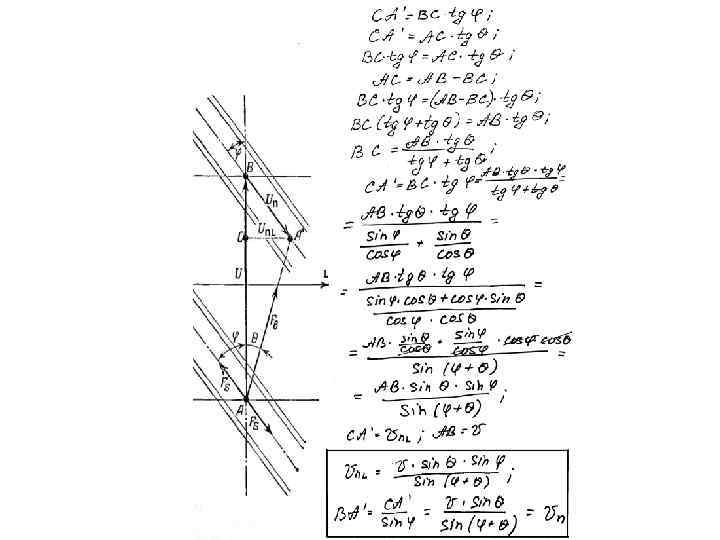 CA' = BC · tg φ;
CA' = AC · tg θ;
BC · tg φ = AC · tg θ;
AC = AB − BC;
BC · tg φ = (AB − BC) · tg θ;
BC (tg φ + tg θ) = AB · tg θ;
BC = AB · tg θ / tg φ + tg θ ;
CA' = BC · tg φ = AB · tg θ · tg φ / tg φ + tg θ
= AB · tg θ · tg φ / sin φ / cos φ + sin θ / cos θ =
= AB · tg θ · tg φ / sin φ · cos θ + cos φ · sin θ / cos φ · cos θ =
= AB · sin θ / cos θ · sin φ / cos φ · cos φ · cos θ / sin (φ + θ) =
= AB · sin θ · sin φ / sin (φ + θ) ;
CA' = υпL ; AB = υ
υпL = υ · sin θ · sin φ / sin (φ + θ) ;
BA' = CA' / sin φ = υ · sin θ / sin (φ + θ) = υп
φ
B
Uп
C
UпL
A'
U
L
Fв
φ
θ
Fб
A
Fб